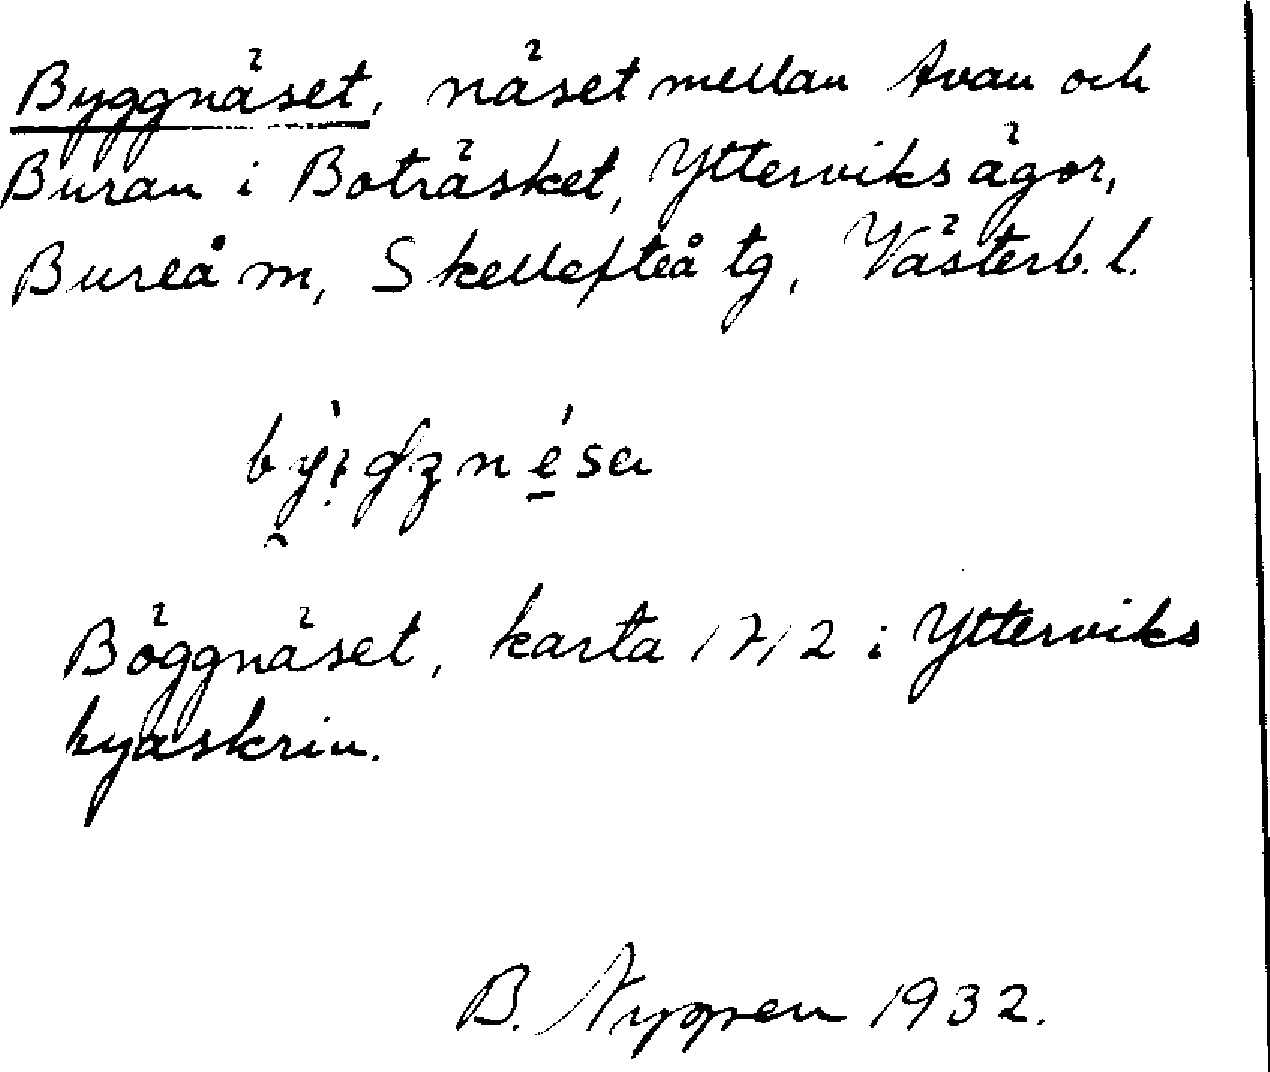 Byggnäset, näset mellan Avan och
Buran i Boträsket, Ytterviks ägor,
Bureå m, Skellefteå tg, Västerb. l.
Böggnäset, karta 1712 i Ytterviks
byaskrin.
B. Nygren 1932.